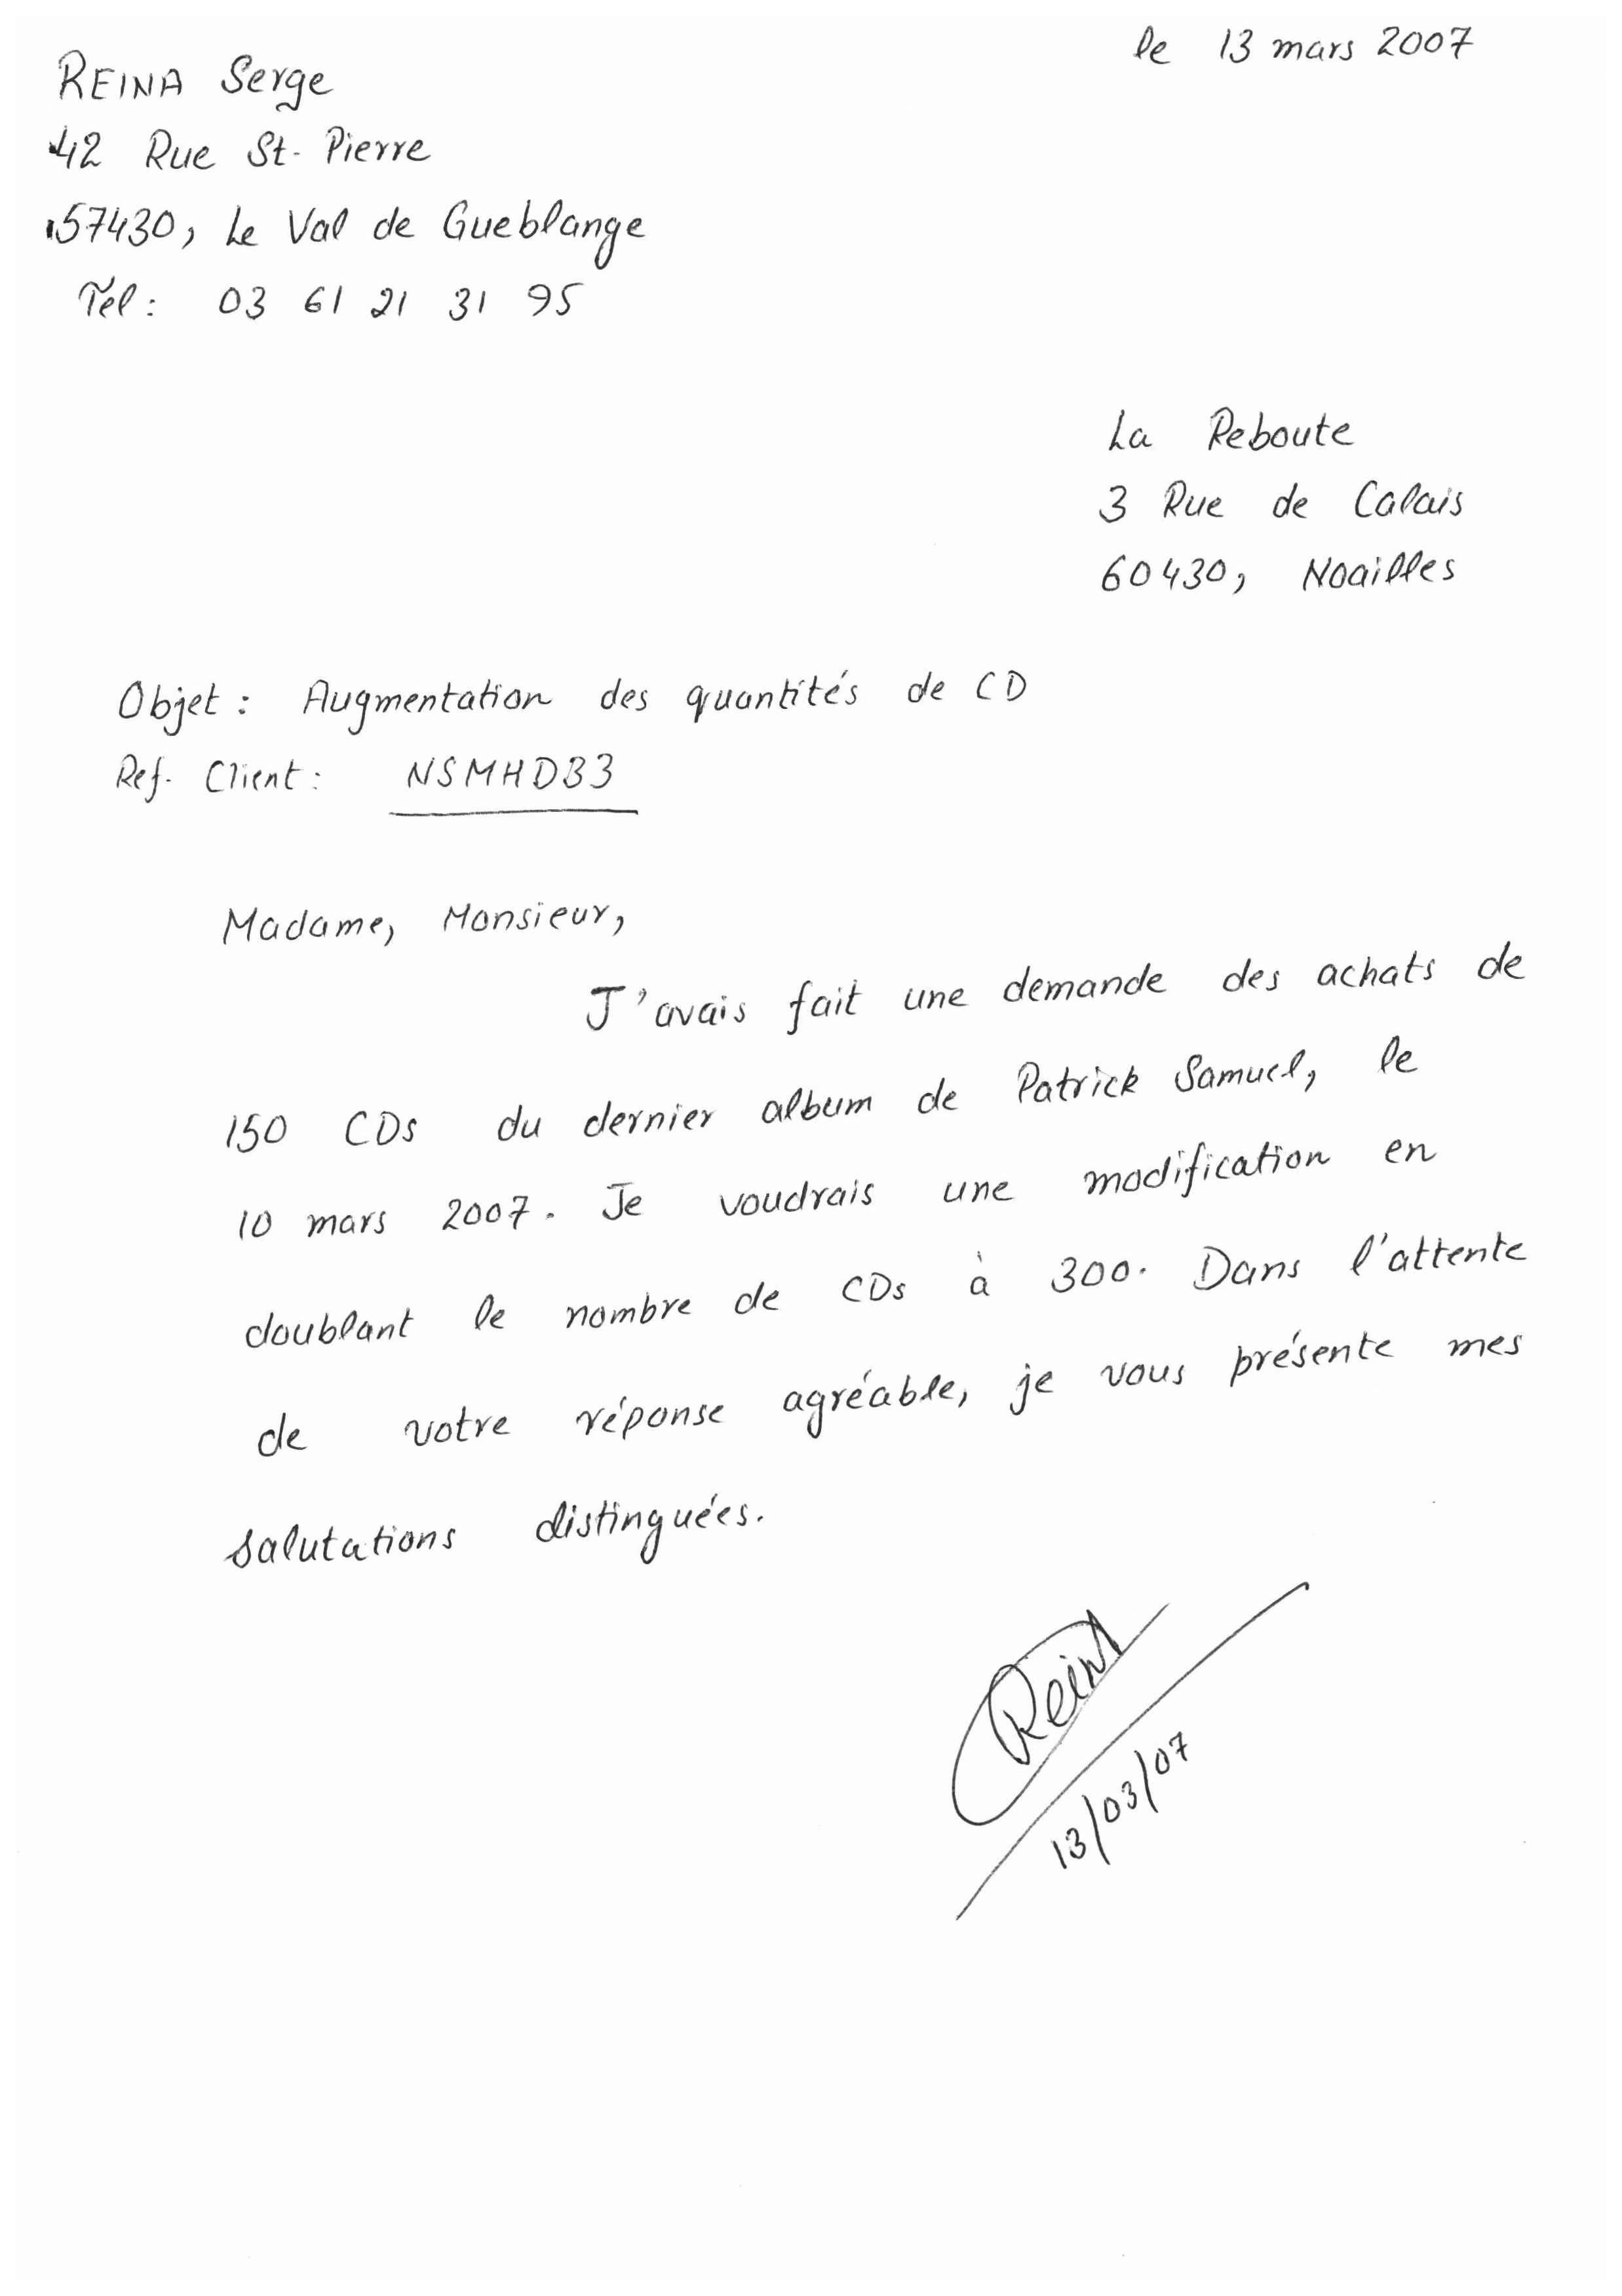 le 13 mars 2007
REINA Serge
42 Rue St-Pierre
57430, Le Val de Gueblange
Tél: 03 61 21 31 95
La Reboute
3 Rue de Calais
60430, Noailles
Objet : Augmentation des quantités de CD
Ref. Client : NSMHDB3
Madame, Monsieur,
J'avais fait une demande des achats de
150 CDs du dernier album de Patrick Samuel, le
10 mars 2007. Je voudrais une modification en
doublant le nombre de CDs à 300. Dans l'attente
de votre réponse agréable, je vous présente mes
salutations distinguées.
Reina
13/03/07